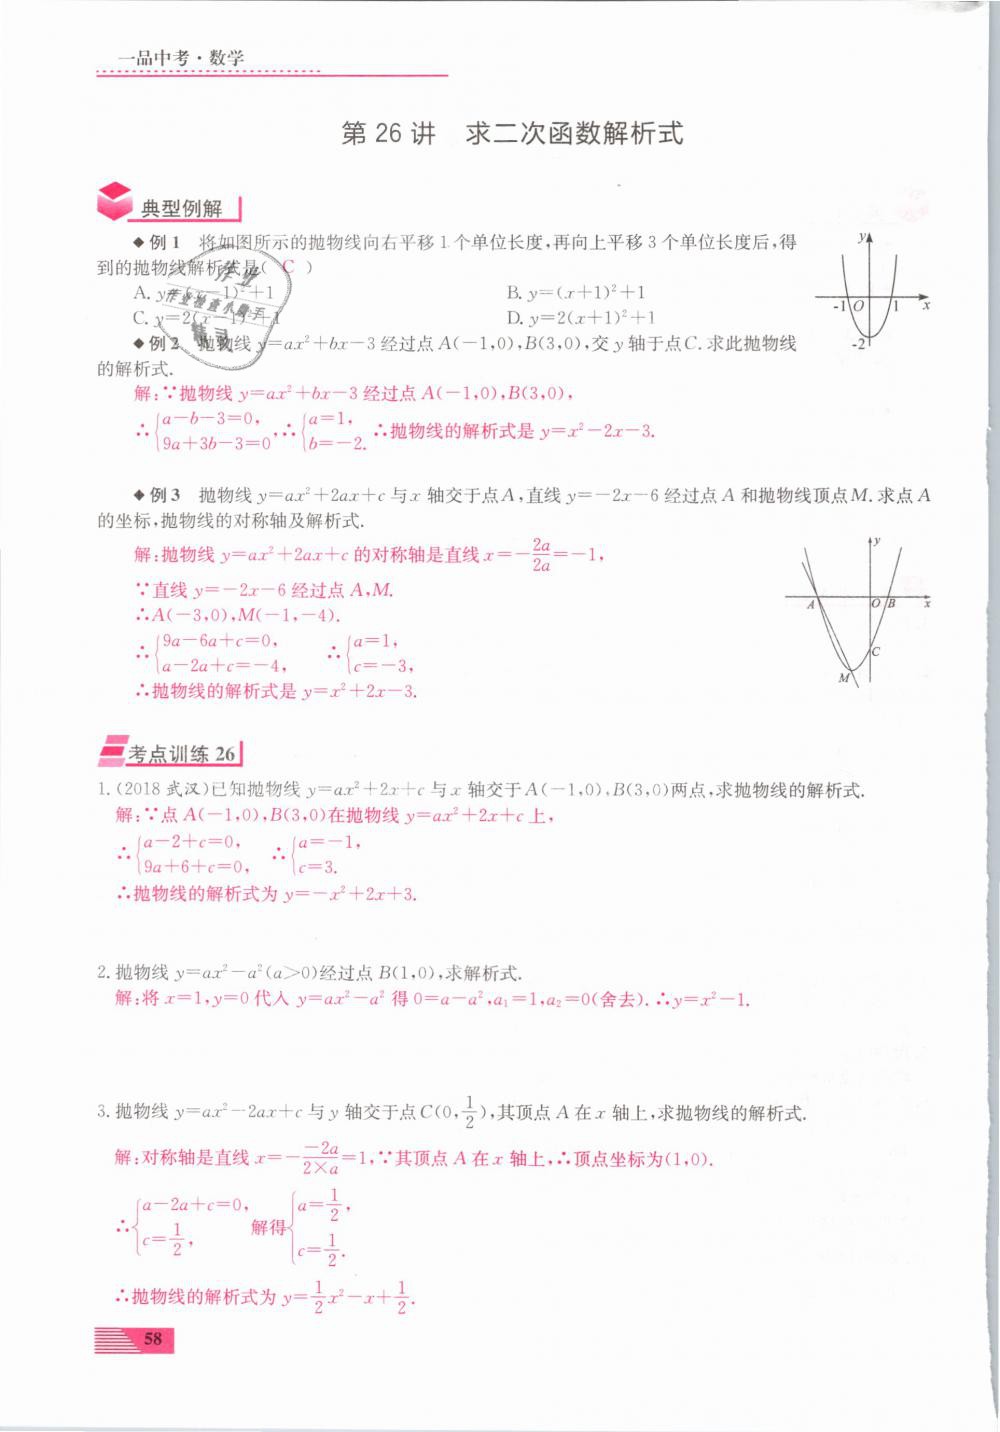 一品中考·数学
第 26 讲　求二次函数解析式
典型例解
◆例 1　将如图所示的抛物线向右平移 1 个单位长度,再向上平移 3 个单位长度后,得
到的抛物线解析式是( C )
A. y=(x-1)²+1　B. y=(x+1)²+1
C. y=2(x-1)²+1　D. y=2(x+1)²+1
y
-1 O 1 x
-2
◆例 2　抛物线 y=ax²+bx-3 经过点 A(-1,0),B(3,0),交 y 轴于点 C. 求此抛物线
的解析式.
解:∵抛物线 y=ax²+bx-3 经过点 A(-1,0),B(3,0),
∴{a-b-3=0, 9a+3b-3=0,∴{a=1, b=-2. ∴抛物线的解析式是 y=x²-2x-3.
◆例 3　抛物线 y=ax²+2ax+c 与 x 轴交于点 A,直线 y=-2x-6 经过点 A 和抛物线顶点 M. 求点 A
的坐标,抛物线的对称轴及解析式.
解:抛物线 y=ax²+2ax+c 的对称轴是直线 x=-2a/2a=-1,
∵直线 y=-2x-6 经过点 A,M.
∴A(-3,0),M(-1,-4).
∴{9a-6a+c=0, a-2a+c=-4, ∴{a=1, c=-3,
∴抛物线的解析式是 y=x²+2x-3.
y
A O B x
C
M
考点训练 26
1. (2018 武汉)已知抛物线 y=ax²+2x+c 与 x 轴交于 A(-1,0),B(3,0)两点,求抛物线的解析式.
解:∵点 A(-1,0),B(3,0)在抛物线 y=ax²+2x+c 上,
∴{a-2+c=0, 9a+6+c=0, ∴{a=-1, c=3.
∴抛物线的解析式为 y=-x²+2x+3.
2. 抛物线 y=ax²-a²(a>0)经过点 B(1,0),求解析式.
解:将 x=1,y=0 代入 y=ax²-a² 得 0=a-a²,a₁=1,a₂=0(舍去). ∴y=x²-1.
3. 抛物线 y=ax²-2ax+c 与 y 轴交于点 C(0,1/2),其顶点 A 在 x 轴上,求抛物线的解析式.
解:对称轴是直线 x=-(-2a)/(2×a)=1,∵其顶点 A 在 x 轴上,∴顶点坐标为(1,0).
∴{a-2a+c=0, c=1/2, 解得{a=1/2, c=1/2.
∴抛物线的解析式为 y=1/2x²-x+1/2.
58
作业
作业检查小助手
精灵